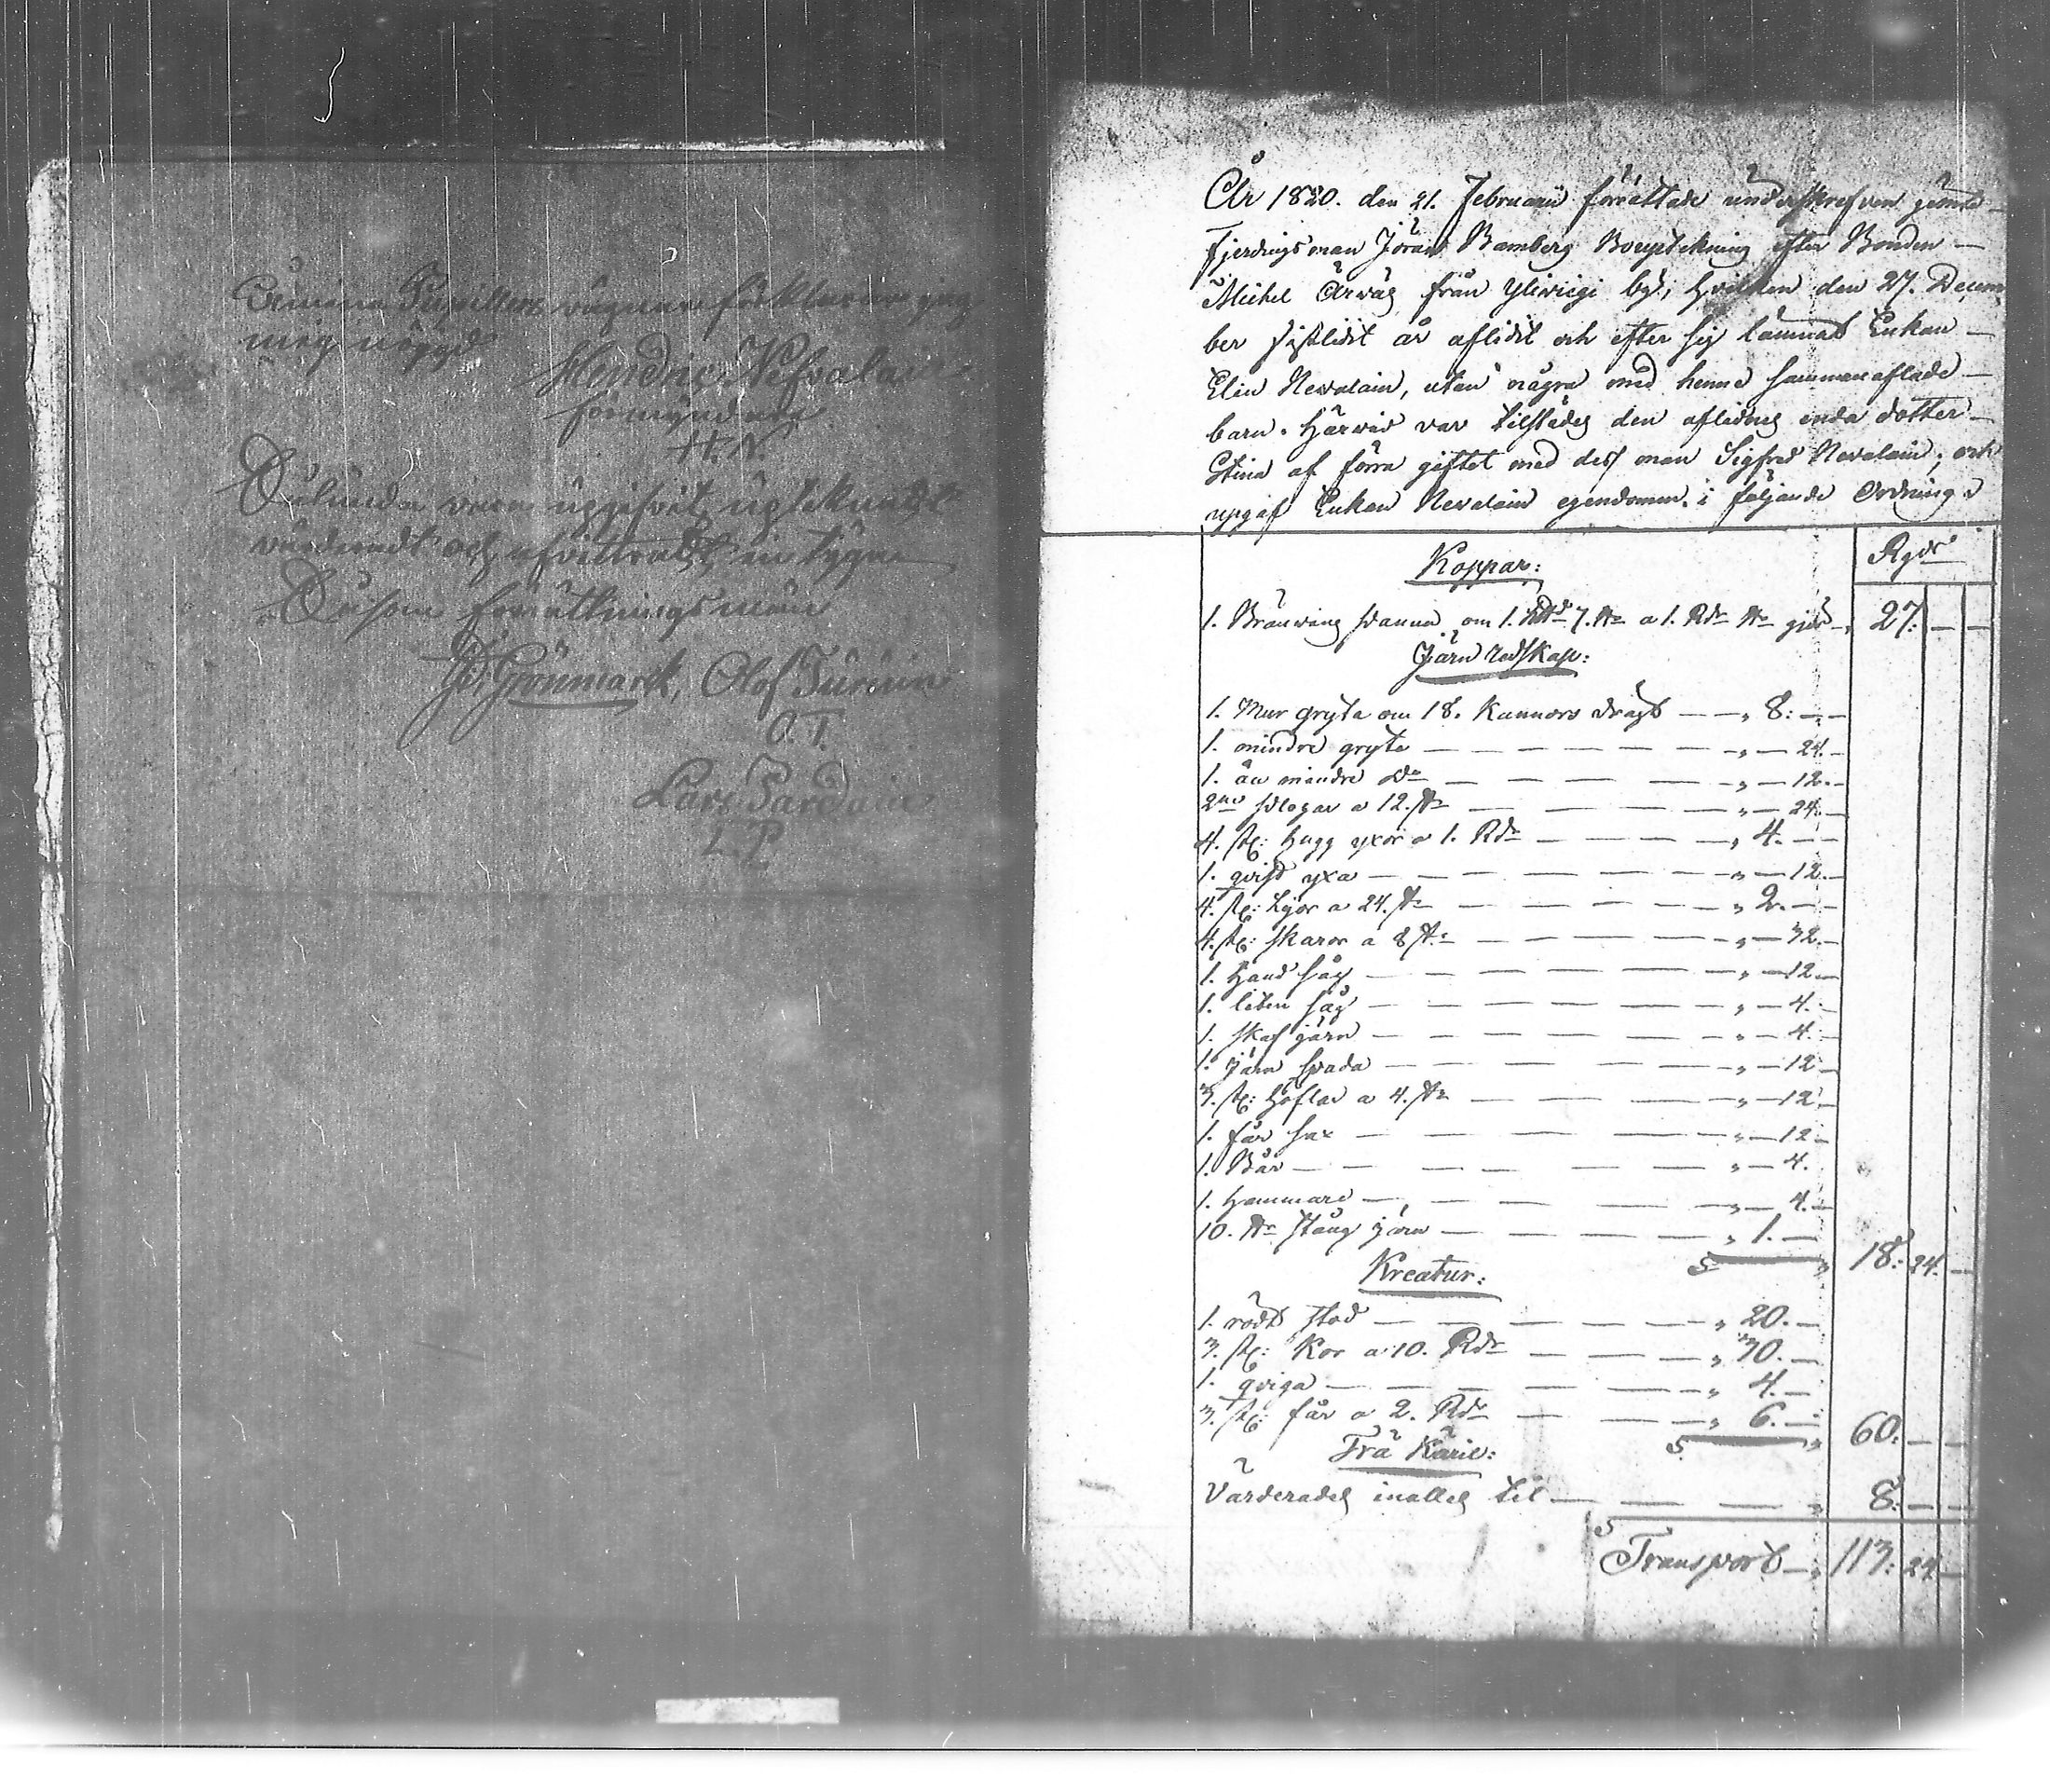 mina Pupillers vägnar förklarar jag
mig nögd
Hendric Nefvalain
förmyndare
H. N.
Sålunda vara upgifvit, upteknadt
värderadt och afvittradt, in tygna
Såsom förrättningsmän
Grönmarck, Olof Turuin
O. T.
Lars Pardain
L. P.
År 1820. den 21. Februarii förrättade underskrefven jemte
Fjerdingsman Jöran Bamberg Bouptekning efter Bonden
Michel Ärväg från Yliwiegi by, hvilken den 27. Decem
ber sistledit år aflidit och efter sig lämnat Enkan
Elin Nevalain, utan några med henne sammanaflade
barn. Härwid var tilstädes den aflidnes enda dotter
Stina af förra giftet med dess man Sigfred Nevalain; och
upgaf Enkan Nevalain egendomen i följande Ordning.
Koppar: Rgds
1. Bränvins panna om 1. 7. a 1. Rdr gjör 27. — —
Järn redskap:
1. Mur gryta om 18. Kannors drägt — — „ 8: — —
1. mindre gryta — — „ — 24. —
1. än mindre do — — „ — 12. —
2ne plogar a 12. — — „ — 24. —
4. st: hugg yxor a 1. Rdr — — „ 4. — —
1. qvist yxa — — „ — 12. —
4. st: Lijor a 24. — — „ 2. — —
4. st: skäror a 8 — — „ — 32. —
1. Hand såg — — „ — 12 —
1. liten såg — — „ — 4. —
1. skaf järn — — „ — 4. —
1. Järn spada — — „ — 12 —
3. st: Höflar a 4. — — „ — 12 —
1. får sax — — „ — 12 —
1. Bår — — „ — 4.
1. hammare — — „ — 4. —
10. stång järn — — „ 1. —
S „ 18: 24. —
Kreatur:
1. rödt stod — — „ 20. —
3. st: Kor a 10. Rdr — — „ 30. —
1. qviga — — „ 4. —
3. st: får a 2. Rdr — — „ 6. —
S „ 60: — —
Trä Käril:
Värderades inalles til — — „ 8: — —
S
Transport — „ 113: 24 —